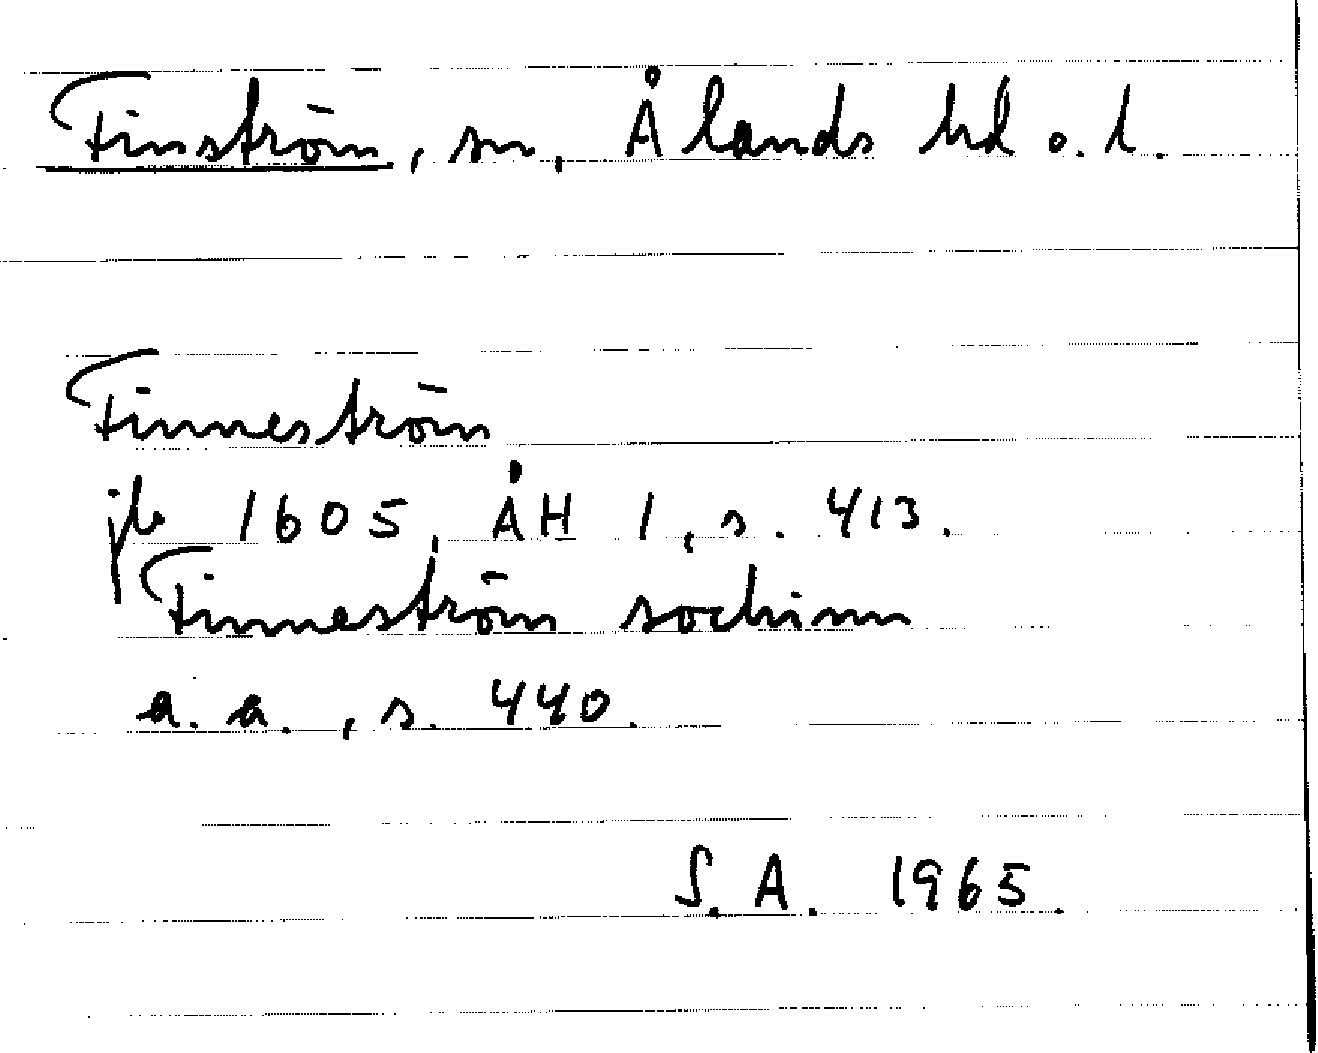 Finström, sn, Ålands hd o. l.
Finneström
jb 1605, ÅH 1, s. 413.
Finneström sochinn
a. a., s. 440.
S. A. 1965.